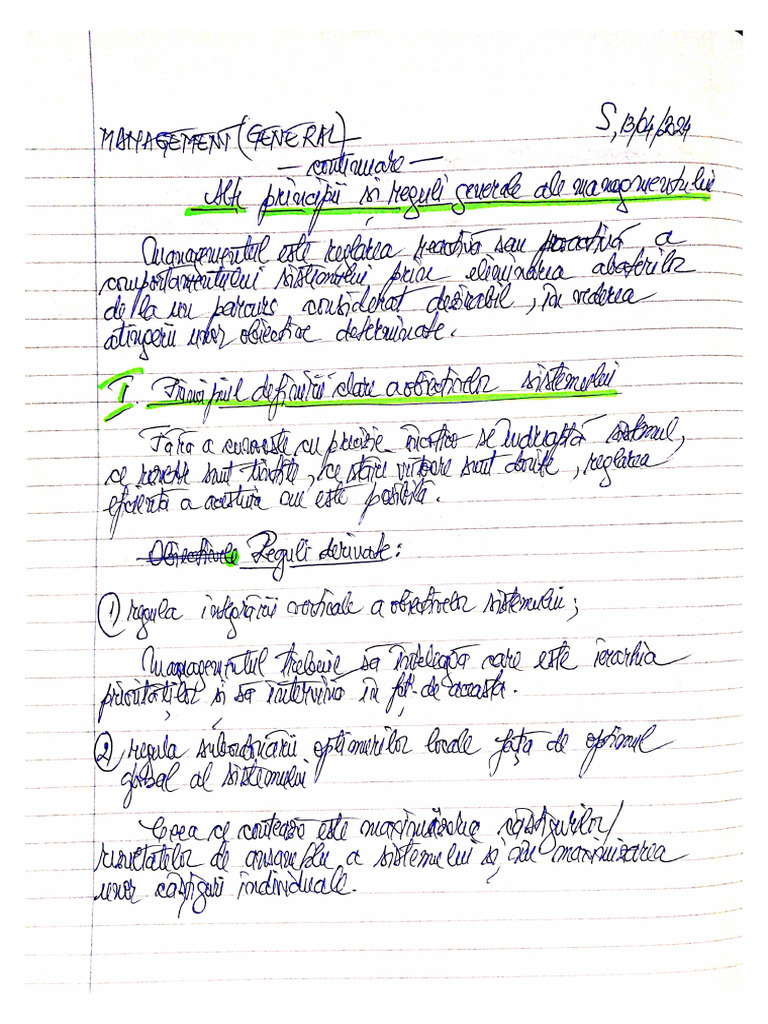 MANAGEMENT (GENERAL)
S, 13/04/2024
— continuare —
Alte principii și reguli generale ale managementului
Managementul este reglarea reactivă sau proactivă a
comportamentului sistemului prin eliminarea abaterilor
de la un parcurs considerat dezirabil, în vederea
atingerii unor obiective determinate.
I. Principiul definirii clare a obiectivelor sistemului
Fără a cunoaște cu precizie încotro se îndreaptă sistemul,
ce sunt țintite, ce stări viitoare sunt dorite, reglarea
eficientă a acestuia nu este posibilă.
Obiectivele Reguli derivate:
1) regula integrării verticale a obiectivelor sistemului;
Managementul trebuie să înțeleagă care este ierarhia
priorităților și să intervină în fcț. de aceasta.
2) regula subordonării optimurilor locale față de optimul
global al sistemului
Ceea ce contează este maximizarea câștigurilor/
rezultatelor de ansamblu a sistemului și nu maximizarea
unor câștiguri individuale.